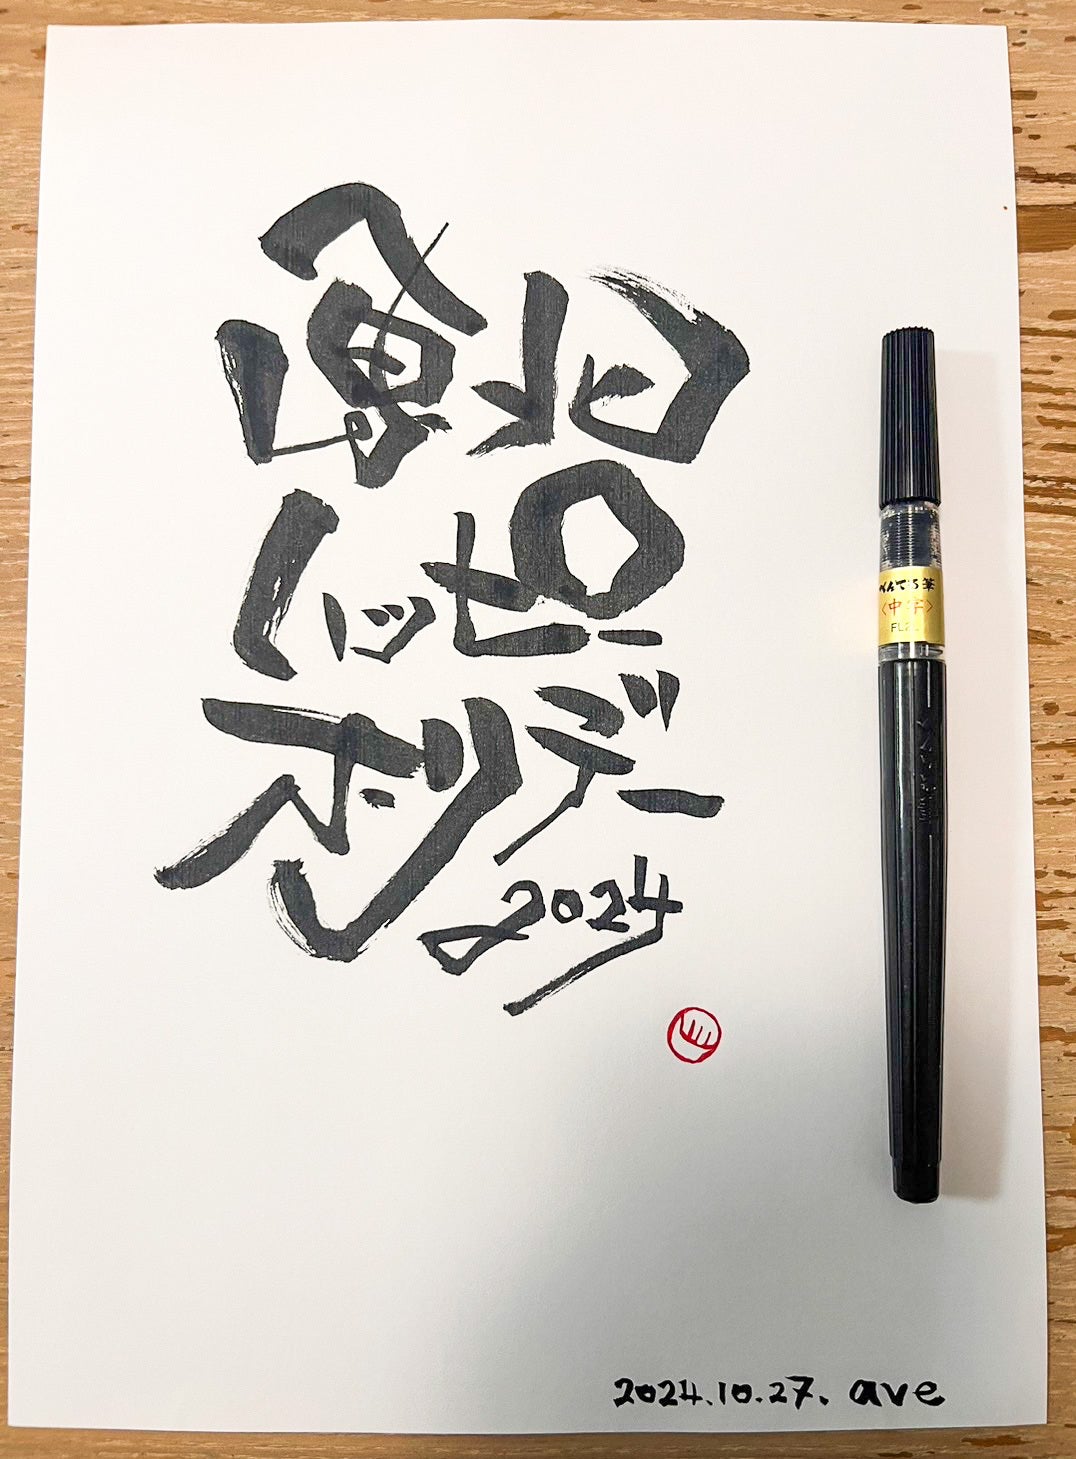 ハッピー
ホリデー
2024
ぺんてる筆
〈中字〉
2024.10.27. ave